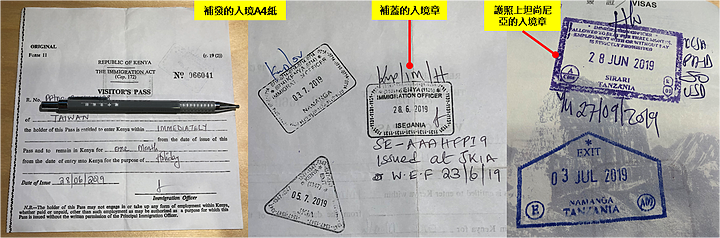 補發的入境A4紙
ORIGINAL
FORM 11
(r. 19 (2))
REPUBLIC OF KENYA
THE IMMIGRATION ACT
(Cap. 172)
Nº 966041
VISITOR'S PASS
R. No.
of TAIWAN
the holder of this Pass is entitled to enter Kenya within IMMEDIATELY
from the date of issue of this
Pass and to remain in Kenya for one Month
from the date of entry into Kenya for the purpose of Holiday
Date of Issue 28/06/2019
Immigration Officer
N.B.—The holder of this Pass may not engage in or take up any form of employment within Kenya,
whether paid or unpaid, other than such employment as may be authorized as a purpose for which this
Pass is issued without the written permission of the Principal Immigration Officer.
補蓋的入境章
03.7.2019
NAMANGA
IMMIGRATION OFFICER
28.6.2019
ISEBANIA
SE-AAAHFPI9
Issued at JKIA
W.E.F 23/6/19
05.7.2019
護照上坦尚尼
亞的入境章
VISAS
IMMIGRATION OFFICER
EMPLOYMENT WITH OR WITHOUT PAY
IS STRICTLY PROHIBITED
28 JUN 2019
SIRARI
TANZANIA
50
USD
27/09/2019
EXIT
03 JUL 2019
NAMANGA
TANZANIA